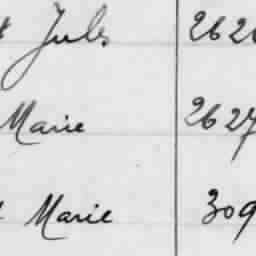 Jules 262
Marie 2627
Marie 309